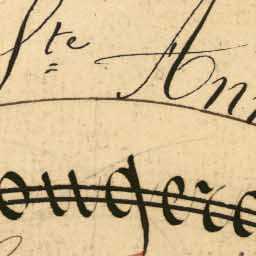 Ste Ann
ougero